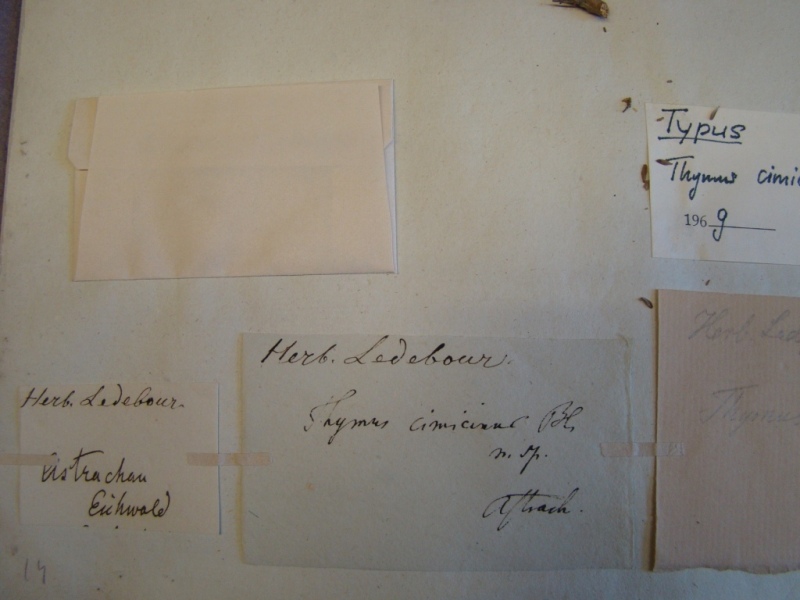 Typus
Thymus cimic
1969
Herb. Ledebour.
Thymus cimicinus Bl.
n. sp.
Astrach.
Herb. Ledebour.
Astrachan
Eichwald
Herb. Led
Thymus
14